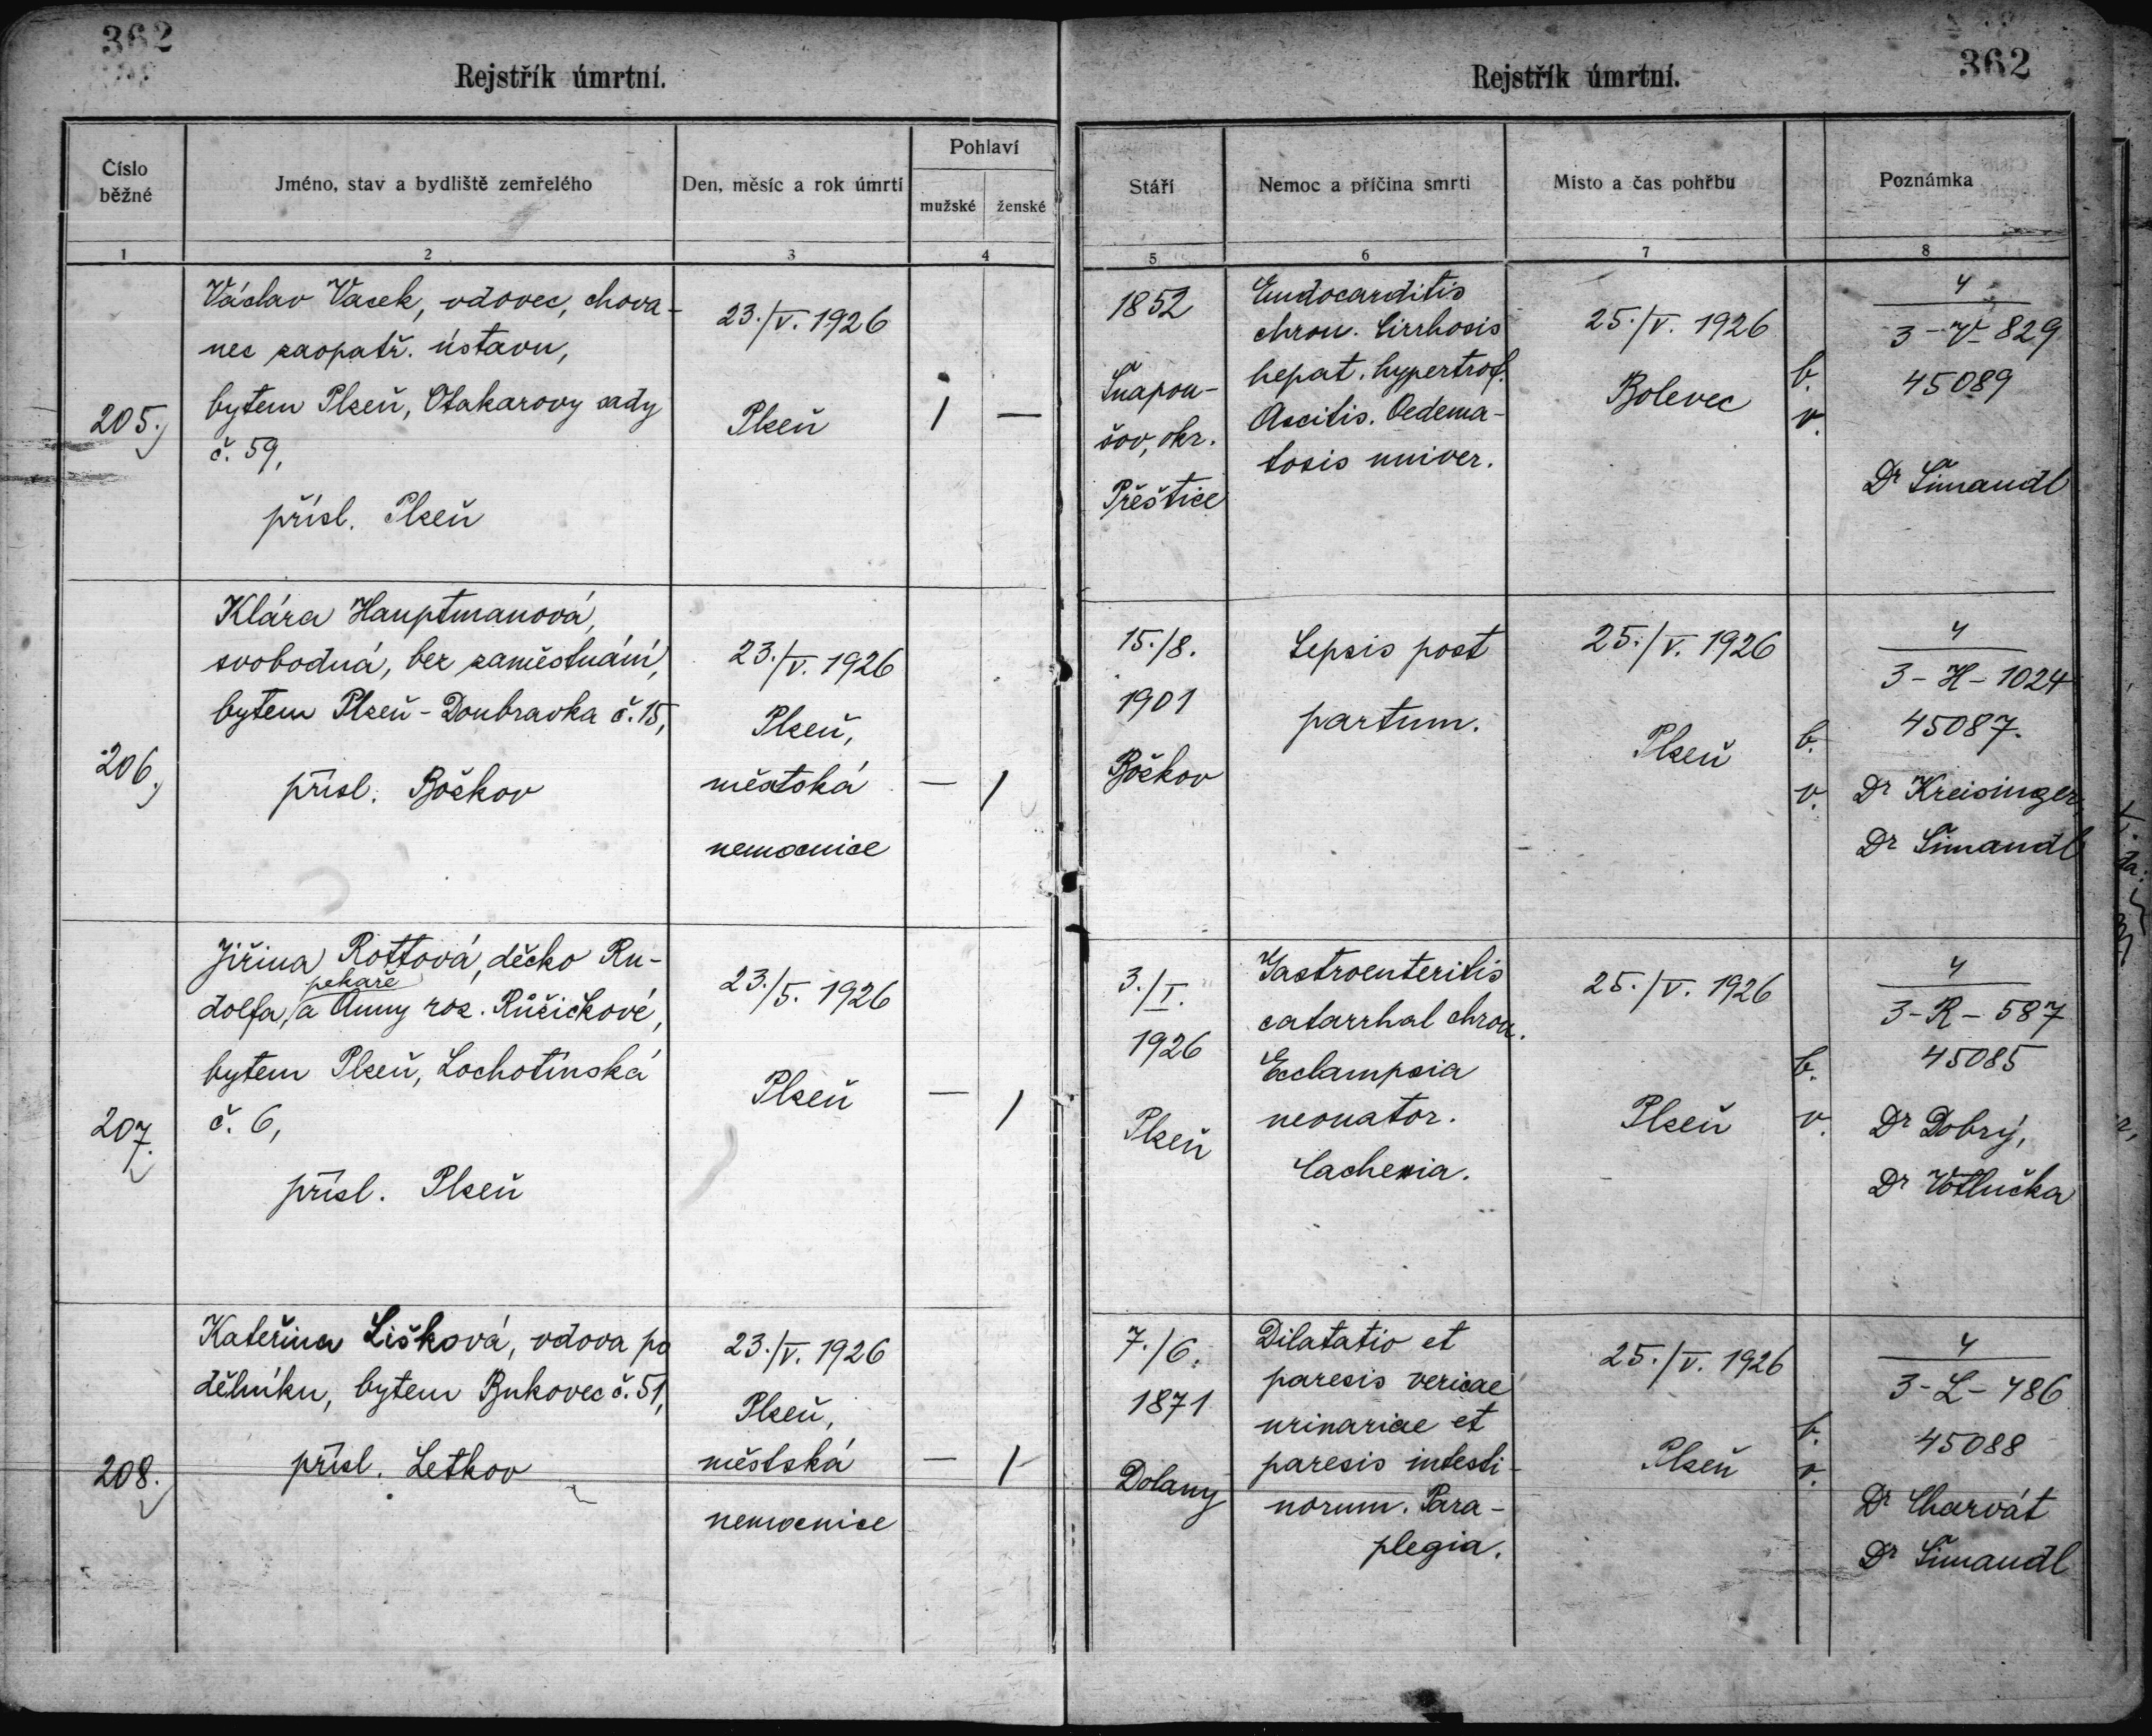 362
Rejstřík úmrtní.
Číslo běžné
Jméno, stav a bydliště zemřelého
Den, měsíc a rok úmrtí
Pohlaví
mužské
ženské
1
2
3
4
205.
Václav Vacek, vdovec, chova-
nec zaopatř. ústavu,
bytem Plzeň, Otakarovy sady
č. 59,
přísl. Plzeň
23./V. 1926
Plzeň
1
—
206.
Klára Hauptmanová,
svobodná, bez zaměstnání,
bytem Plzeň-Doubravka č. 15,
přísl. Božkov
23./V. 1926
Plzeň,
městská
nemocnice
—
1
207.
Jiřina Rottová, děcko Ru-
pekaře
dolfa, a Anny roz. Růžičkové,
bytem Plzeň, Lochotínská
č. 6,
přísl. Plzeň
23./5. 1926
Plzeň
—
1
208.
Kateřina Lišková, vdova po
dělníku, bytem Bukovec č. 51,
přísl. Letkov
23./V. 1926
Plzeň,
městská
nemocnice
—
1
362
Rejstřík úmrtní.
Stáří
Nemoc a příčina smrti
Místo a čas pohřbu
Poznámka
5
6
7
8
1852
Šnapou-
šov, okr.
Přeštice
Endocarditis
chron. Cirrhosis
hepat. hypertrof.
Ascitis. Oedema-
tosis univer.
25./V. 1926
Bolevec
b.
v.
4
3-V-829
45089
Dr Šimandl
15./8.
1901
Božkov
Sepsis post
partum.
25./V. 1926
Plzeň
b.
v.
4
3-H-1024
45087.
Dr Kreisinger,
Dr Šimandl
3./I.
1926
Plzeň
Gastroenteritis
catarrhal chron.
Ecclampsia
neonator.
Cachexia.
25./V. 1926
Plzeň
b.
v.
4
3-R-587
45085
Dr Dobrý,
Dr Votlučka
7./6.
1871
Dolany
Dilatatio et
paresis vericae
urinariae et
paresis intesti-
norum. Para-
plegia.
25./V. 1926
Plzeň
b.
v.
4
3-L-486
45088
Dr Charvát
Dr Šimandl